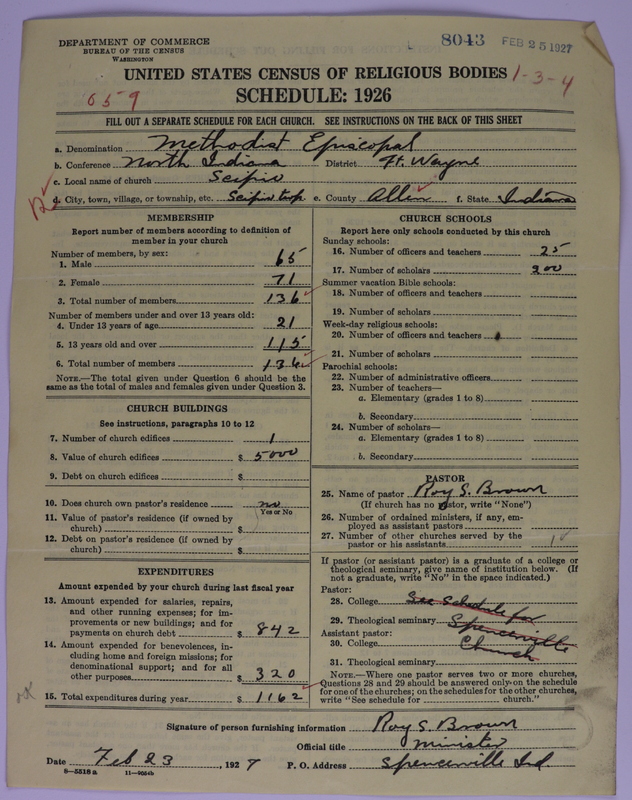 DEPARTMENT OF COMMERCE
BUREAU OF THE CENSUS
WASHINGTON
8043 FEB 25 1927
UNITED STATES CENSUS OF RELIGIOUS BODIES 1-3-4
659
SCHEDULE: 1926
FILL OUT A SEPARATE SCHEDULE FOR EACH CHURCH. SEE INSTRUCTIONS ON THE BACK OF THIS SHEET
a. Denomination Methodist Episcopal
b. Conference North Indiana District Ft. Wayne
c. Local name of church Scipio
d. City, town, village, or township, etc. Scipio twp e. County Allen f. State Indiana
MEMBERSHIP
Report number of members according to definition of
member in your church
Number of members, by sex:
1. Male 65
2. Female 71
3. Total number of members 136
Number of members under and over 13 years old:
4. Under 13 years of age 21
5. 13 years old and over 115
6. Total number of members 136
NOTE.—The total given under Question 6 should be the
same as the total of males and females given under Question 3.
CHURCH BUILDINGS
See instructions, paragraphs 10 to 12
7. Number of church edifices 1
8. Value of church edifices $ 5000
9. Debt on church edifices $
10. Does church own pastor's residence no
Yes or No
11. Value of pastor's residence (if owned by
church) $
12. Debt on pastor's residence (if owned by
church) $
EXPENDITURES
Amount expended by your church during last fiscal year
13. Amount expended for salaries, repairs,
and other running expenses; for im-
provements or new buildings; and for
payments on church debt $ 842
14. Amount expended for benevolences, in-
cluding home and foreign missions; for
denominational support; and for all
other purposes $ 320
15. Total expenditures during year $ 1162
CHURCH SCHOOLS
Report here only schools conducted by this church
Sunday schools:
16. Number of officers and teachers 25
17. Number of scholars 200
Summer vacation Bible schools:
18. Number of officers and teachers
19. Number of scholars
Week-day religious schools:
20. Number of officers and teachers
21. Number of scholars
Parochial schools:
22. Number of administrative officers
23. Number of teachers—
a. Elementary (grades 1 to 8)
b. Secondary
24. Number of scholars—
a. Elementary (grades 1 to 8)
b. Secondary
PASTOR
25. Name of pastor Roy S. Brown
(If church has no pastor, write "None")
26. Number of ordained ministers, if any, em-
ployed as assistant pastors
27. Number of other churches served by the
pastor or his assistants 1
If pastor (or assistant pastor) is a graduate of a college or
theological seminary, give name of institution below. (If
not a graduate, write "No" in the space indicated.)
Pastor:
28. College See Schedule for
29. Theological seminary Spencerville
Assistant pastor:
30. College Church
31. Theological seminary
NOTE.—Where one pastor serves two or more churches,
Questions 28 and 29 should be answered only on the schedule
for one of the churches; on the schedules for the other churches,
write "See schedule for church."
Signature of person furnishing information Roy S. Brown
Official title minister
Date Feb 23, 1927 P. O. Address Spencerville Ind.
8—5518a 11—9054b